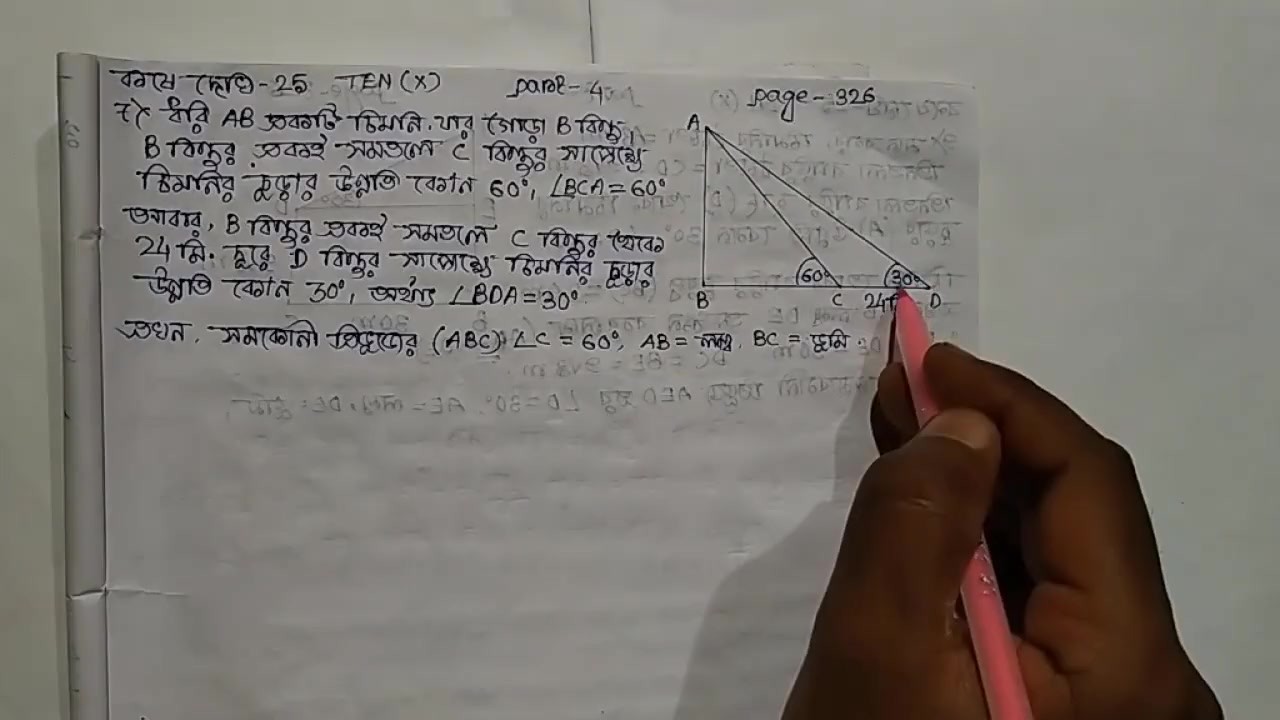 কষে দেখি-25 TEN (X) part-4 page-326
7) ধরি AB একটি চিমনি, যার গোড়া B বিন্দু,
B বিন্দুর একই সমতলে C বিন্দুর সাপেক্ষে
চিমনির চূড়ার উন্নতি কোণ 60°, ∠BCA=60°
আবার, B বিন্দুর একই সমতলে C বিন্দুর থেকে
24 মি. দূরে D বিন্দুর সাপেক্ষে চিমনির চূড়ার
উন্নতি কোণ 30°, অর্থাৎ ∠BDA=30°
এখন, সমকোণী ত্রিভুজের (ABC) ∠C = 60°, AB = লম্ব, BC = ভূমি
A
60° 30°
B C 24 D